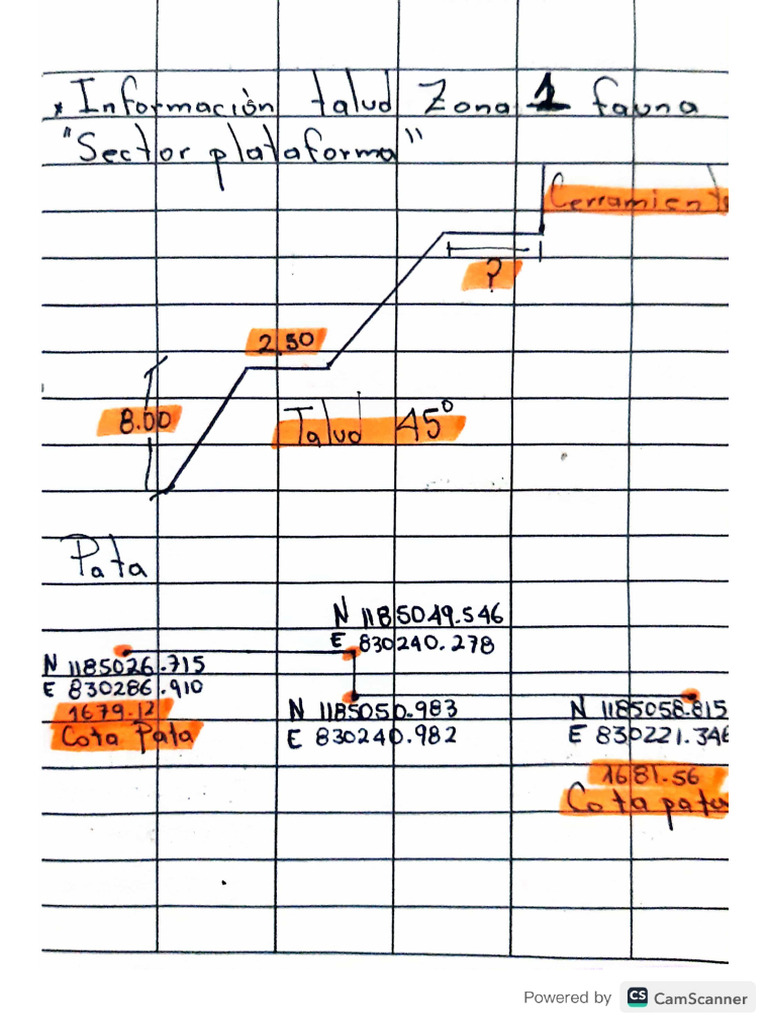 * Información talud Zona 1 fauna
"Sector plataforma"
Cerramiento
?
2.50
8.00
Talud 45°
Pata
N 1185049.546
E 830240.278
N 1185026.715
E 830286.910
1679.12
Cota Pata
N 1185050.983
E 830240.982
N 1185058.815
E 830221.346
1681.56
Cota pata
Powered by CS CamScanner